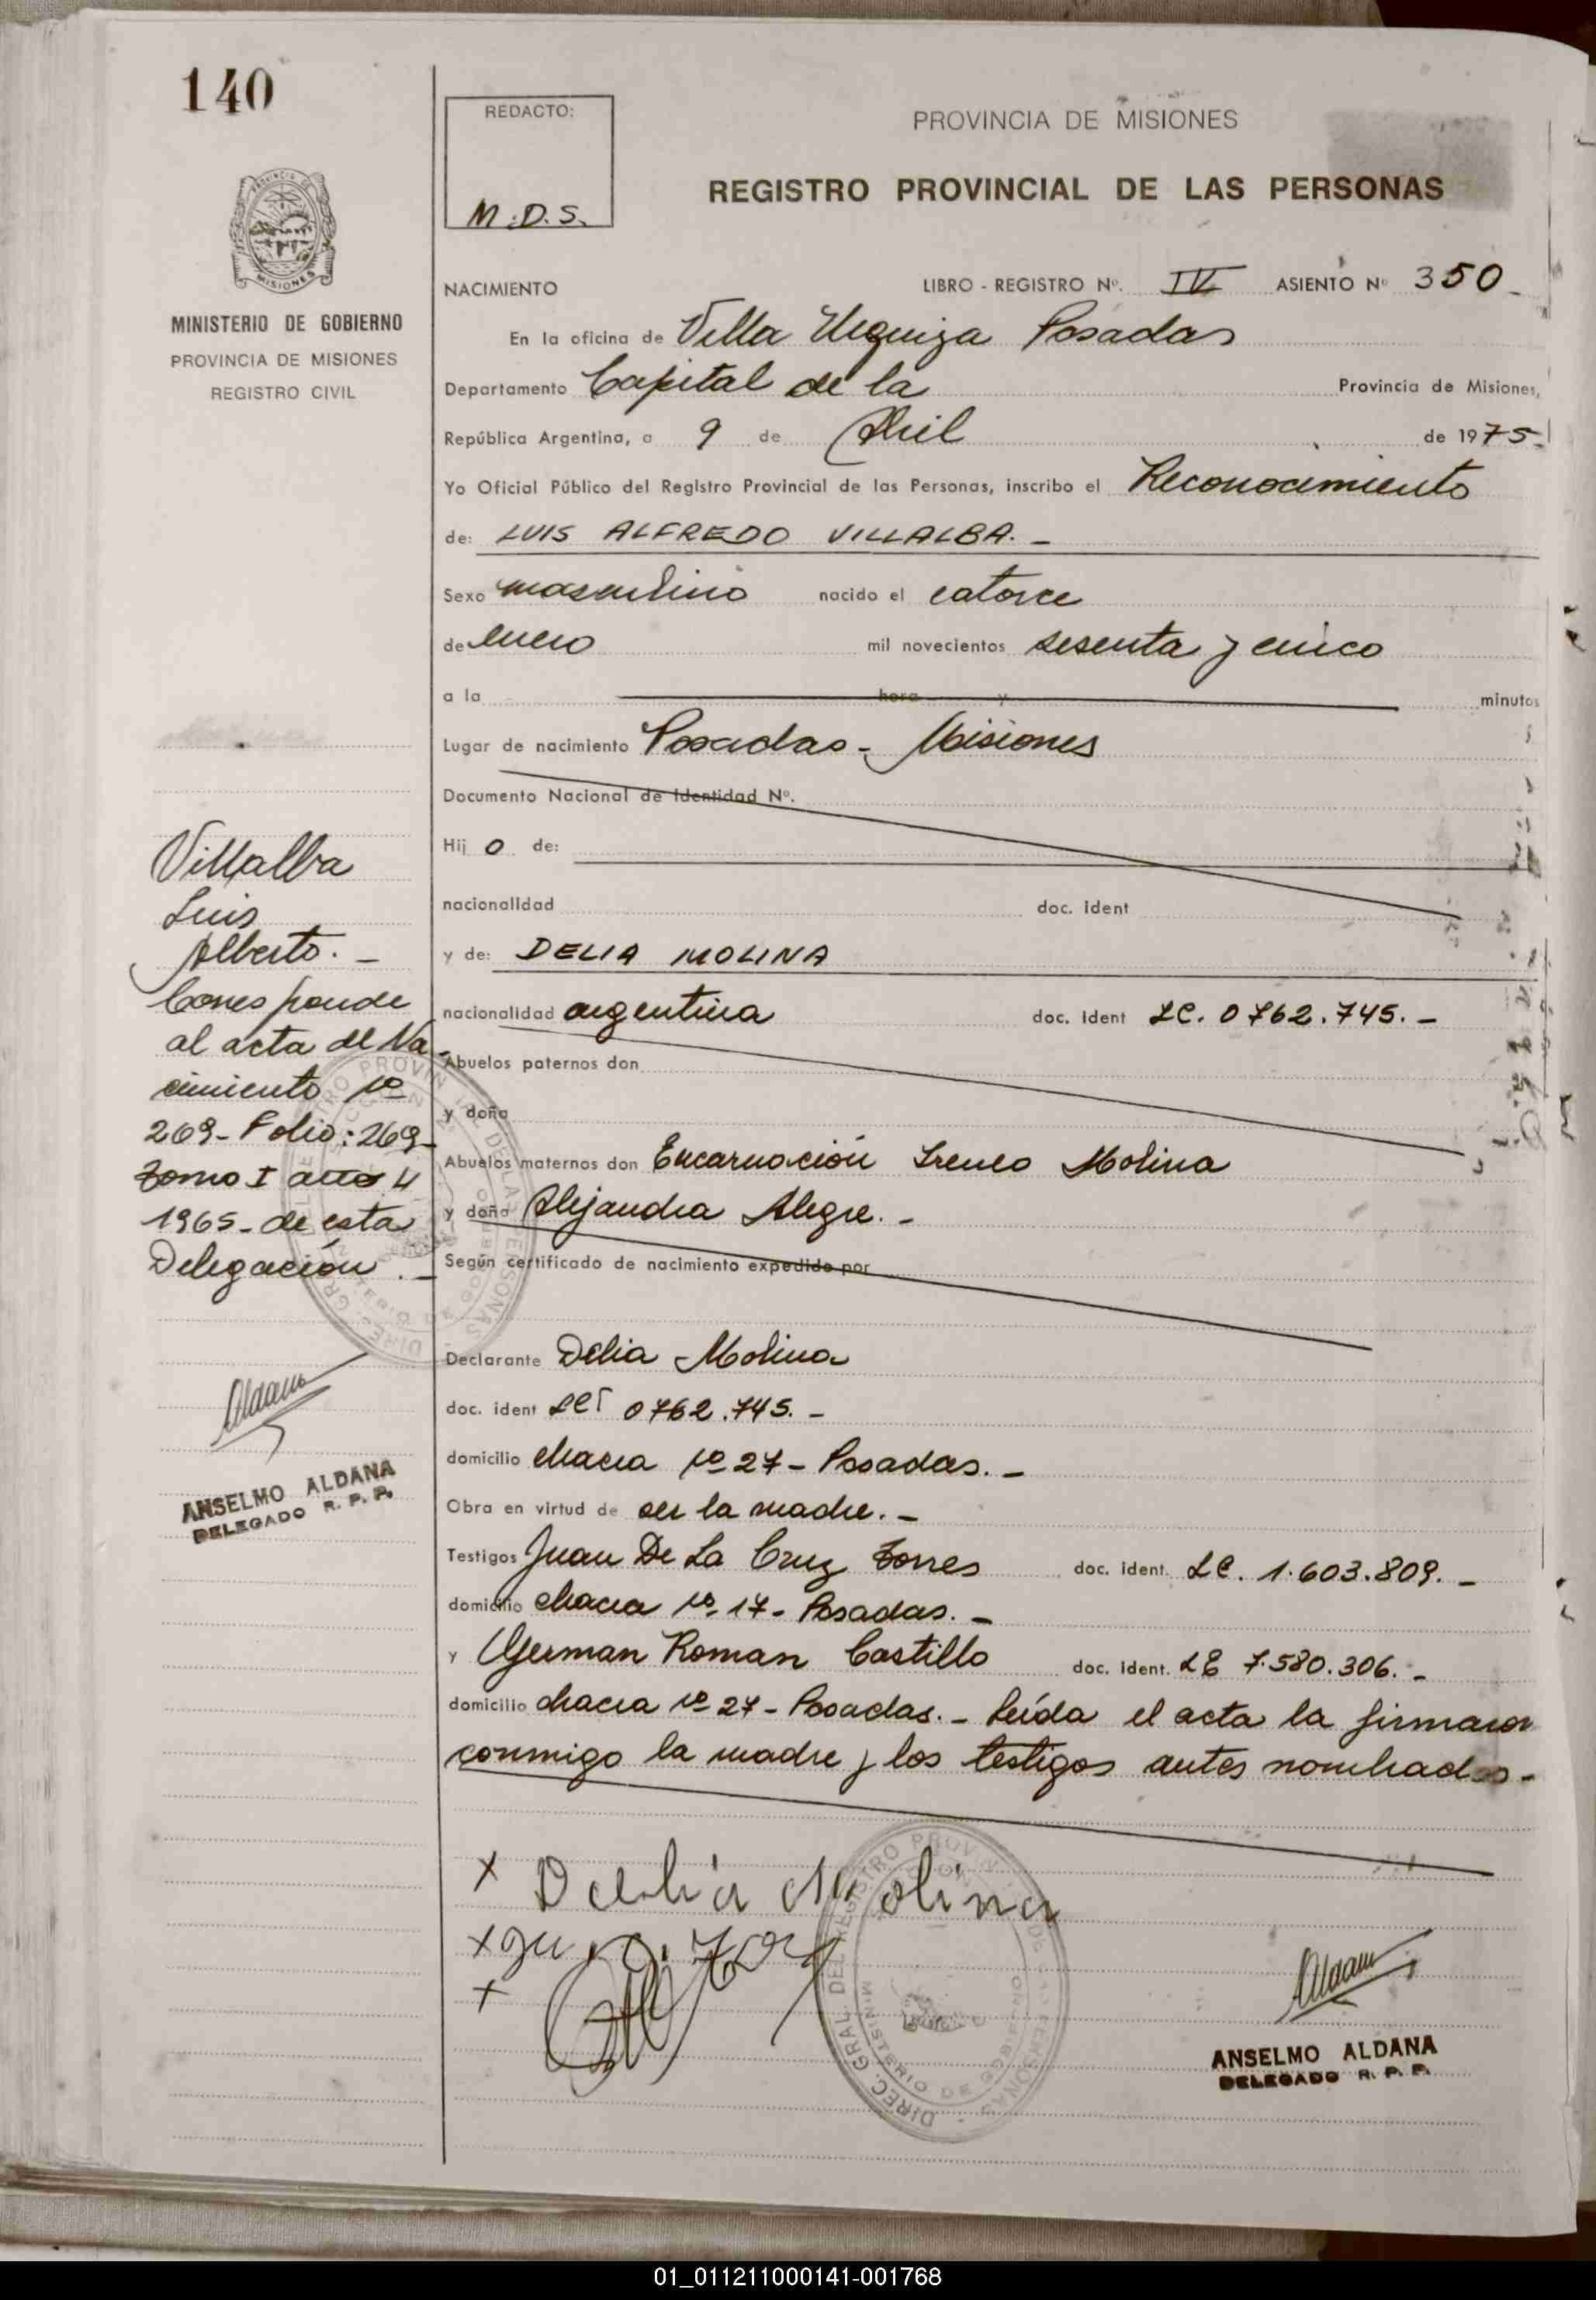 140
REDACTO:
M.D.S.
PROVINCIA DE MISIONES
REGISTRO PROVINCIAL DE LAS PERSONAS
MINISTERIO DE GOBIERNO
PROVINCIA DE MISIONES
REGISTRO CIVIL
NACIMIENTO LIBRO - REGISTRO Nº. IV ASIENTO Nº 350_
En la oficina de Villa Urquiza Posadas
Departamento Capital de la Provincia de Misiones,
República Argentina, a 9 de Abril de 1975-
Yo Oficial Público del Registro Provincial de las Personas, inscribo el Reconocimiento
de: LUIS ALFREDO VILLALBA. _
Sexo masculino nacido el catorce
de enero mil novecientos sesenta y cinco
a la hora y minutos
Lugar de nacimiento Posadas - Misiones
Documento Nacional de Identidad Nº.
Hij o de:
nacionalidad doc. ident
y de: DELIA MOLINA
nacionalidad argentina doc. ident LC. 0762.745. -
Abuelos paternos don
y doña
Abuelos maternos don Encarnación Ireneo Molina
y doña Alejandra Alegre. -
Según certificado de nacimiento expedido por
Declarante Delia Molina
doc. ident 0762.745. -
domicilio chacra Nº 27 - Posadas. -
Obra en virtud de ser la madre. -
Testigos Juan De La Cruz Torres doc. ident. LE. 1.603.809. -
domicilio chacra Nº 17 - Posadas. -
y German Roman Castillo doc. ident. LE 7.580.306. -
domicilio chacra Nº 27 - Posadas. - Leída el acta la firmaron
conmigo la madre y los testigos antes nombrados -
x Delia Molina
x
x
ANSELMO ALDANA
DELEGADO R. P. P.
Villalba
Luis
Alberto. -
Corresponde
al acta de Na-
cimiento Nº
269 - Folio: 269 -
Tomo I
1965 - de esta
Delegación. -
ANSELMO ALDANA
DELEGADO R. P. P.
DIREC. GRAL. DEL REGISTRO PROVIN
MINISTERIO DE GOBIERNO
01_011211000141-001768